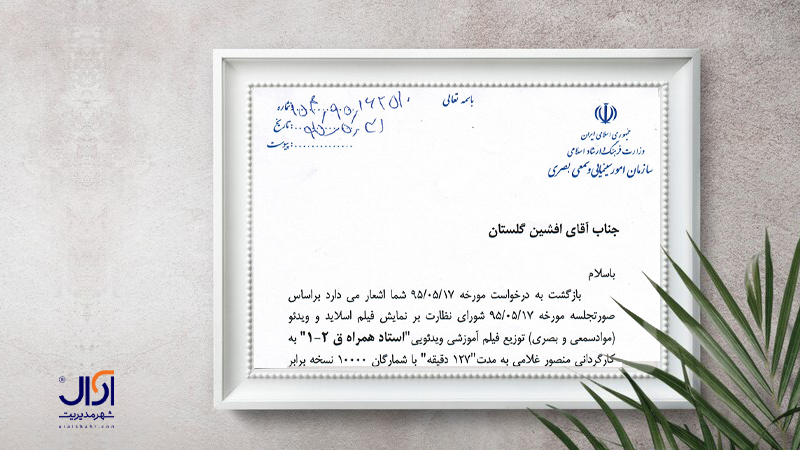 باسمه تعالی
شماره:
تاریخ:
پیوست:..............
جمهوری اسلامی ایران
وزارت فرهنگ و ارشاد اسلامی
سازمان امور سینمایی و سمعی بصری
جناب آقای افشین گلستان
باسلام
بازگشت به درخواست مورخه ۹۵/۰۵/۱۷ شما اشعار می دارد براساس
صورتجلسه مورخه ۹۵/۰۵/۱۷ شورای نظارت بر نمایش فیلم اسلاید و ویدئو
(موادسمعی و بصری) توزیع فیلم آموزشی ویدئویی"استاد همراه ق ۲-۱" به
کارگردانی منصور غلامی به مدت"۱۲۷ دقیقه" با شمارگان ۱۰۰۰۰ نسخه برابر
آرال®
شهر مدیریت
aralshahr.com